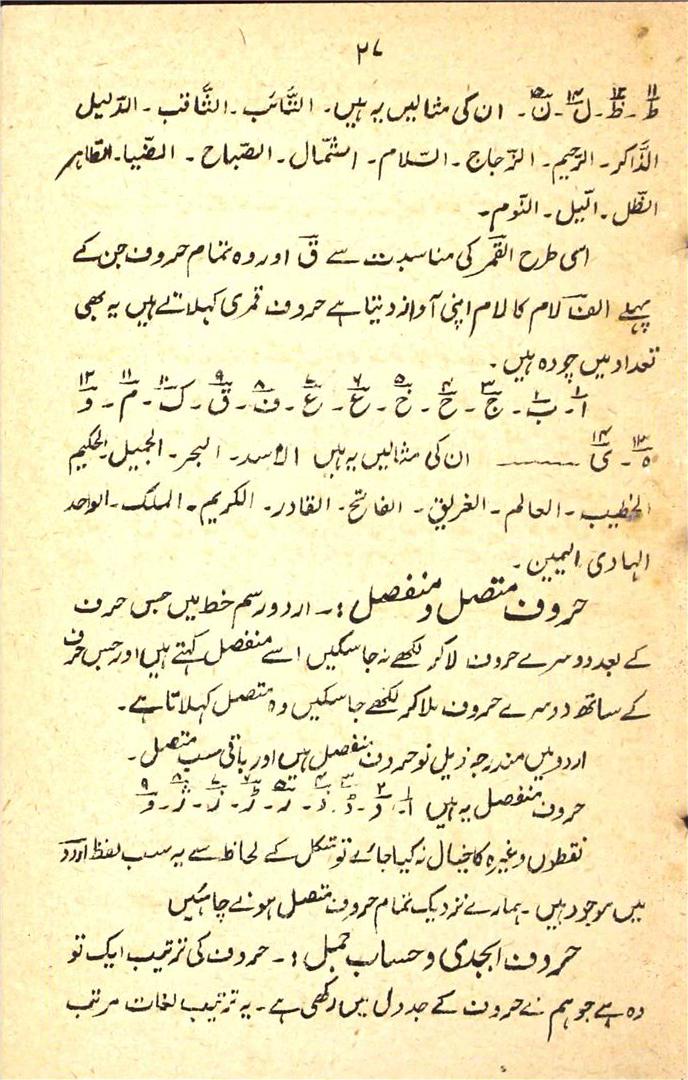 ۲۷
ط۱۱۔ ظ۱۲۔ ل۱۳۔ ن۱۴۔ ان کی مثالیں یہ ہیں۔ التَّائب۔ الثَّاقب۔ الدّلیل
الذَّاکر۔ الرّحیم۔ الزّجاج۔ السّلام۔ الشّمال۔ الصّباح۔ الضّیا۔ الطّاہر
الظّل۔ الّیل۔ النّوم۔
اسی طرح القمر کی مناسبت سے ق اور وہ تمام حروف جن کے
پہلے الف لام کا لام اپنی آواز دیتا ہے حروف قمری کہلاتے ہیں یہ بھی
تعداد میں چودہ ہیں۔
ا۱۔ ب۲۔ ج۳۔ ح۴۔ خ۵۔ ع۶۔ غ۷۔ ف۸۔ ق۹۔ ک۱۰۔ م۱۱۔ و۱۲
ہ۱۳۔ ی۱۴ ــــــ ان کی مثالیں یہ ہیں الاسد۔ البحر۔ الجمیل۔ الحکیم
الخطیب۔ العالم۔ الغریق۔ الفاتح۔ القادر۔ الکریم۔ الملک۔ الواحد
الہادی الیمین۔
حروف متصل و منفصل :۔ اردو رسم خط میں جس حرف
کے بعد دوسرے حروف ملا کر لکھے نہ جا سکیں اسے منفصل کہتے ہیں اور جس حرف
کے ساتھ دوسرے حروف ملا کر لکھے جا سکیں وہ متصل کہلاتا ہے۔
اردو میں مندرجہ ذیل نو حروف منفصل ہیں اور باقی سب متصل۔
حروف منفصل یہ ہیں ا۱۔ د۲۔ ڈ۳۔ ذ۴۔ ر۵۔ ڑ۶۔ ز۷۔ ژ۸۔ و۹
نقطوں وغیرہ کا خیال نہ کیا جائے تو شکل کے لحاظ سے یہ سب لفظ اردو
میں موجود ہیں۔ ہمارے نزدیک تمام حروف متصل ہونے چاہئیں
حروف ابجدی و حساب جمل :۔ حروف کی ترتیب ایک تو
وہ ہے جو ہم نے حروف کے جدول میں رکھی ہے۔ یہ ترتیب لغات مرتب